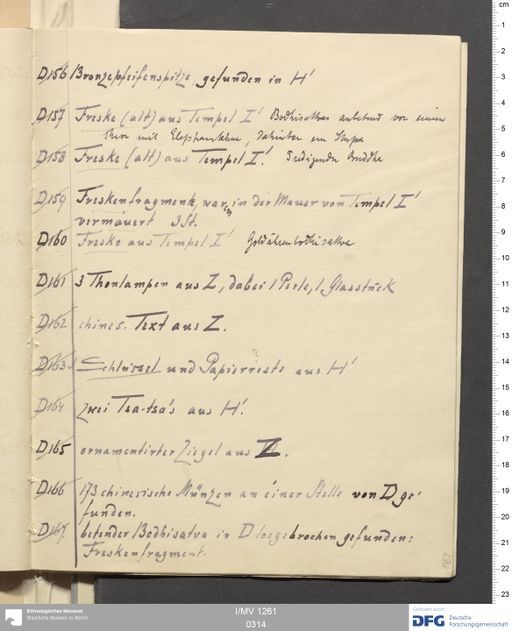 D156 Bronzepfeifenspitze, gefunden in H'
D157 Freske (alt) aus Tempel I' Bodhisattva anbetend vor einem
Thron mit Elephantenlehne, dahinter ein Stupa
D158 Freske (alt) aus Tempel I'. Predigender Buddha
D159 Freskenfragment, war in der Mauer von Tempel I'
vermauert 3 St.
D160 Fresko aus Tempel I'
D161 3 Thonlampen aus Z, dabei 1 Perle, 1 Glasstück
D162 chines. Text aus Z.
D163 Schlüssel und Papierreste aus H'
D164 zwei Tsa-tsa's aus H'.
D165 ornamentirter Ziegel aus Z.
D166 173 chinesische Münzen an einer Stelle von D ge-
funden.
D167 betender Bodhisatva in D losgebrochen gefunden:
Freskenfragment.
Ethnologisches Museum
Staatliche Museen zu Berlin
I/MV 1261
0314
Gefördert durch
DFG Deutsche
Forschungsgemeinschaft
cm
1
2
3
4
5
6
7
8
9
10
11
12
13
14
15
16
17
18
19
20
21
22
23